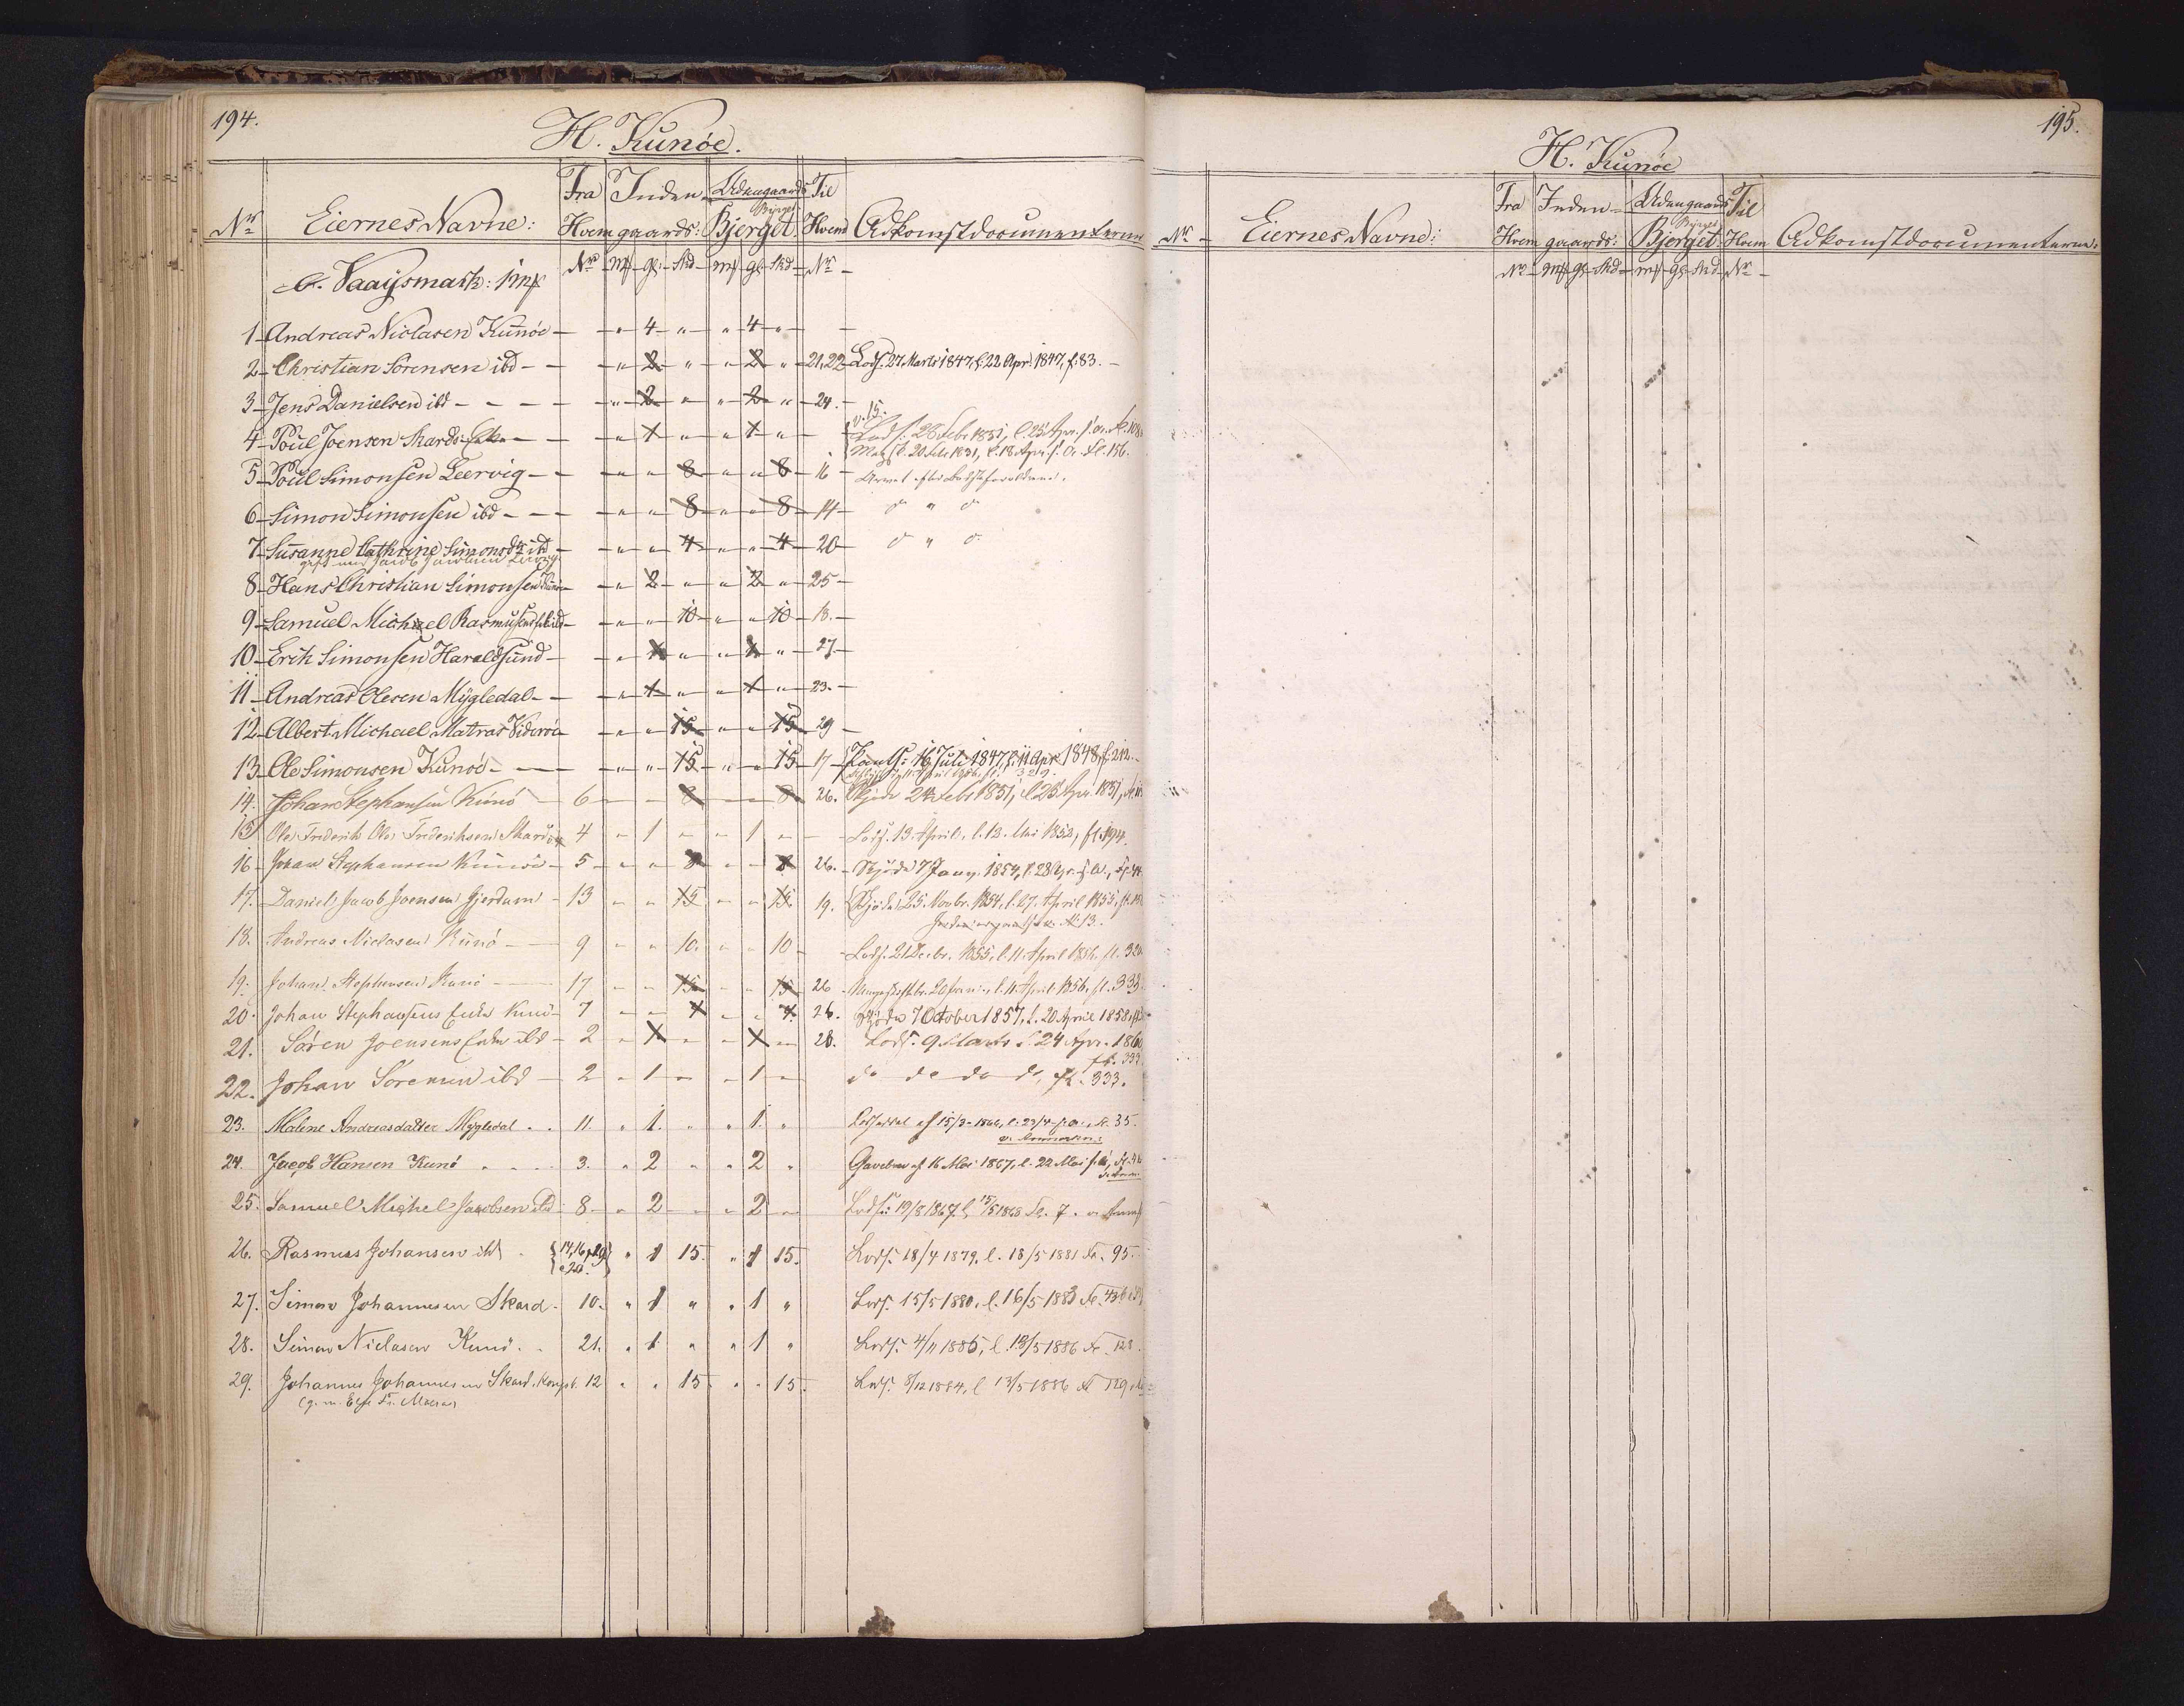 194.
H. Kunöe.
Nr Eiernes Navne: Fra Hvem Inden-gaards: Udengaards Bjerget Til Hvem Adkomstdocumenterne
Nr mk gl. Skd mk gl Skd Nr
c. Vaaysmark: 1 mk
1 Andreas Niclasen Kunöe " 4 " " 4 "
2 Christian Sørensen ibd " 2 " " 2 " 21,22 Lods. 27 Marts 1847, l. 22 Apr. 1847, f. 83.
3 Jens Danielsen ibd " 2 " " 2 " 24.
4 Poul Joensen Skards Enke " 1 " " 1 " v. 15. Lods. 26 Febr 1851, l. 25 Apr. s. a. fl. 108.
l. 18 Apr. s. a. Fl. 156.
5 Poul Simonsen Leervig " " 8 " " 8 16 Arvet efter Bedsteforældrene.
6 Simon Simonsen ibd " " 8 " " 8 14 do " do
7 Susanne Cathrine Simonsdtr ibd " " 4 " " 4 20 do " do
gift med Jacob Leervig
8 Hans Christian Simonsen " 2 " " 2 " 25
9 Samuel Michael Rasmussen ibd " " 10 " " 10 18.
10 Erik Simonsen Haraldsund " 1 " " 1 " 27
11 Andreas Olesen Mygledal " 1 " " 1 " 23.
12 Albert Michael Matras Viderøe " " 15 " " 15 29
13 Ole Simonsen Kunöe " " 15 " " 15 17 16 Juli 1847, l. 11 Apr. 1848, f. 212.
14. Johan Stephansen Kunö 6 8 8 26. Skjöde 24 Febr 1851, l. 25 Apr. 1851, fl.
15 Ole Frederik Ole Frederiksen Skard 4 " 1 " " 1 " Lods. 13. April, l. 12. Mai 1852, fl. 194.
16 Johan Stephansen Kunöe 5 " " 8 " " 8 26. Skjöde 7 Jany. 1854, l. 28 Apr. s. a., fl.
17. Daniel Jacob Joensen Gjerdum 13 " " 15 " " 15 19. Skjöde 25. Novbr. 1854, l. 27. April 1855, fl.
13.
18. Andreas Niclasen Kunö 9 " " 10. " " 10 Lods. 21 Decbr. 1855, l. 11. April 1856, fl. 320
19. Johan Stephansen Kunö 17 15 15 26 l. 11. April 1856, fl. 333.
20. Johan Stephansens Enke Kunö 7 4 4. 26. Skjöde 7 October 1857, l. 20 April 1858,
21. Søren Joensens Enke ibd 2 " 1 " " 1 28. Lods. 9 Marts l. 24 Apr. 186
fl. 333
22. Johan Sörensen ibd 2 " 1 " " 1 " do do do do, fl. 333.
23. Maline Andreasdatter Mygledal 11. " 1. " " 1. " af 15/3 1866, l. 23/4 s. a., fl. 35.
24. Jacob Hansen Kunö 3. " 2 " " 2 " Gavebrev af 16 Mai 1867, l. 22 Mai s. a., fl.
25. Samuel Michel Jacobsen ibd 8 " 2 " " 2 " Lods. 19/8 1867 l. 15/5 1868 fl. 7.
26. Rasmus Johansen ibd 14,16,19 & 20. " 1 15. " 1 15. Lods. 18/4 1879, l. 18/5 1881 fl. 95.
27. Simon Johannesen Skard 10. " 1 " " 1 " Lods. 15/5 1880, l. 16/5 1883 fl. 436
28. Simon Niclasen Kunö 21. " 1 " " 1 " Lods. 4/11 1885, l. 13/5 1886 fl. 128.
29. Johannes Johannesen Skard, Kongsb. 12 " " 15. " " 15. Lods. 8/12 1884, l. 13/5 1886 fl 129,
(g. m. Else Fr. Matras
195.
H. Kunöe
Nr Eiernes Navne: Fra Hvem Inden-gaards: Udengaards Bjerget Til Hvem Adkomstdocumenterne.
Nr mk gl Skd mk gl Skd Nr